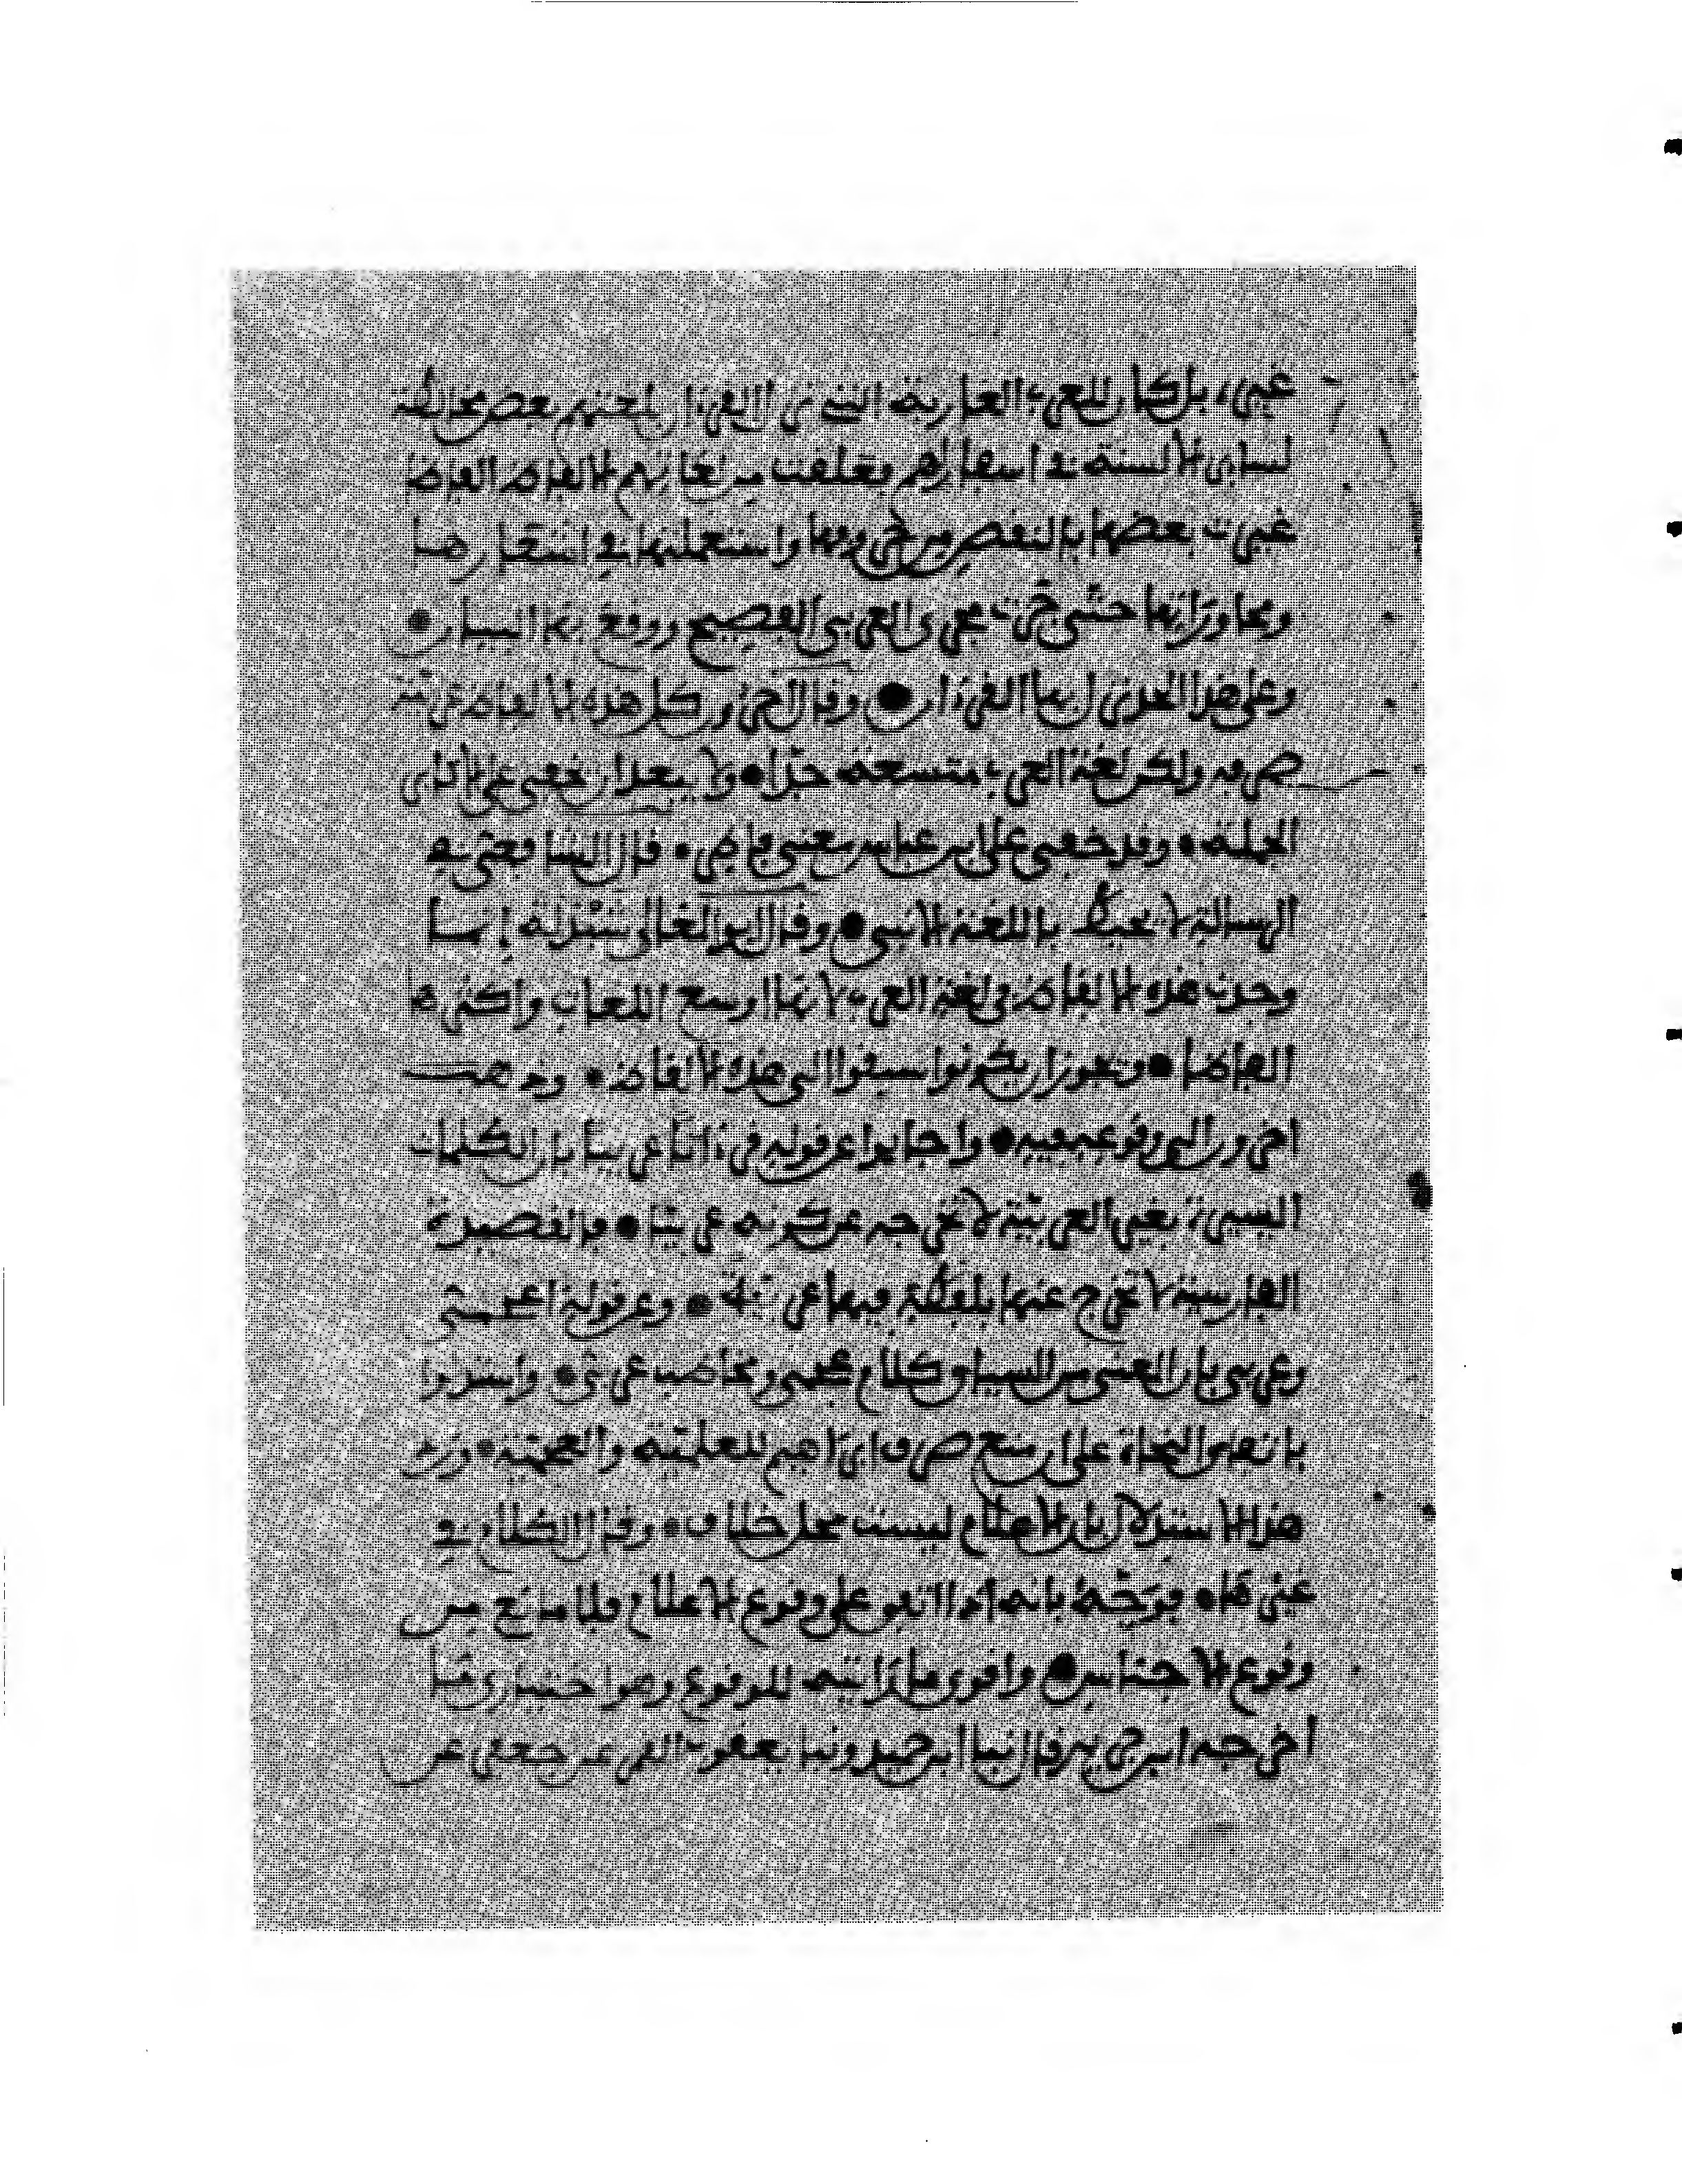 غيره بل كان للعرب العاربة التي نزل القرءان بلغتهم بعض مخالطة
لساير الالسنة في اسفارهم فعلقت من لغاتهم الفاظ الفاظا
غيرت بعضها بالنقص من حروفها واستعملتها في اشعارها
ومحاوراتها حتى جرت مجرى العربي الفصيح ووقع بها البيان
وعلى هذا الحد نزل بها القرءان وقال اخرون كل هذه الالفاظ عربية
صرفة ولكن لغة العرب متسعة جدا ولا يبعد ان تخفى على الاكابر
الجلة وقد خفي على ابن عباس معنى فاطر قال الشافعي في
الرسالة لا يحيط باللغة الا نبي وقال ابو المعالي شيذلة انما
وجدت هذه الالفاظ في لغة العرب لانها اوسع اللغات واكثرها
الفاظا ويجوز ان يكونوا سبقوا الى هذه الالفاظ وذهب
اخرون الى وقوعه فيه واجابوا عن قوله قرءانا عربيا بان الكلمات
اليسيرة بغير العربية لا تخرجه عن كونه عربيا فالقصيدة
الفارسية لا تخرج عنها بلفظة فيها عربية وعن قوله اعجمي
وعربي بان المعنى من السياق اكلام عجمي ومخاطب عربي واستدلوا
باتفاق النحاة على ان منع صرف ابراهيم للعلمية والعجمة ورد
هذا الاستدلال بان الاعلام ليست محل خلاف وقال الكلام في
غيرها فوجه بانه اذا اتفق على وقوع الاعلام فلا مانع من
وقوع الاجناس واقوى ما رايته للوقوع وهو اختياري ما
اخرجه ابن جرير قال نبا ابن حميد ونبا يعقوب القمي عن جعفر عن